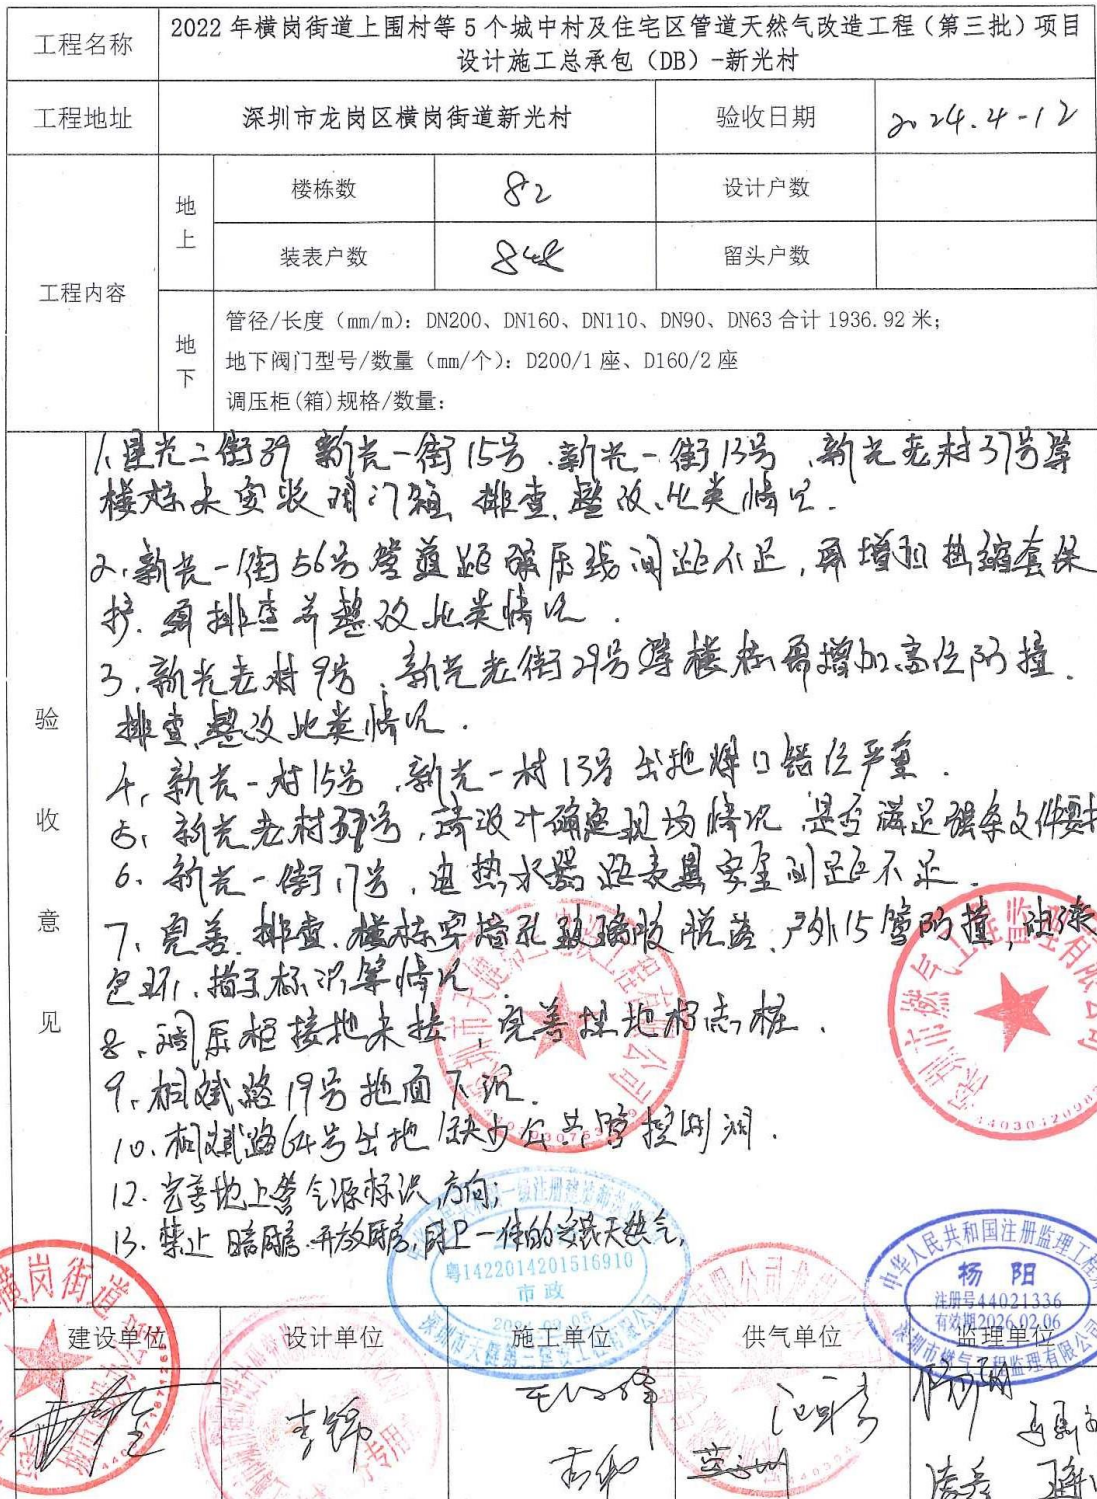 工程名称
2022年横岗街道上围村等5个城中村及住宅区管道天然气改造工程(第三批)项目
设计施工总承包(DB)-新光村
工程地址
深圳市龙岗区横岗街道新光村
验收日期
2024.4-12
工程内容
地上
楼栋数
82
设计户数
装表户数
留头户数
地下
管径/长度(mm/m):DN200、DN160、DN110、DN90、DN63合计1936.92米;
地下阀门型号/数量(mm/个):D200/1座、D160/2座
调压柜(箱)规格/数量:
验收意见
1.星光二街39 新光一街15号、新光一街13号、新光老村37号等
楼栋未安装阀门箱,排查,整改此类情况.
2.新光一街56号管道距 压线间距不足,需增加热缩套保
护.需排查并整改此类情况.
3.新光老村9号、新光老街29号等楼栋需增加高位防撞.
排查,整改此类情况.
4.新光一村15号、新光一村13号出地焊口错位严重.
5.新光老村 号,请设计确定现场情况,是否满足强条文件要求
6.新光一街17号,电热水器距表具安全间距不足.
7.完善、排查,楼栋穿墙孔玻璃胶脱落、户外15管防撞,油漆
包环、指示标识等情况
8.调压柜接地未接,完善埋地标志桩.
9.相斌路19号地面下沉.
10.相斌路64号出地缺少公共管控制阀.
12.完善地上管气源标识,方向;
13.禁止暗厨房.开放厨房,厨卫一体的安装天然气.
粤1422014201516910
市政
中华人民共和国注册监理工程师
杨阳
注册号44021336
有效期2026.02.06
深圳市燃气工程监理有限公司
建设单位
设计单位
施工单位
供气单位
监理单位